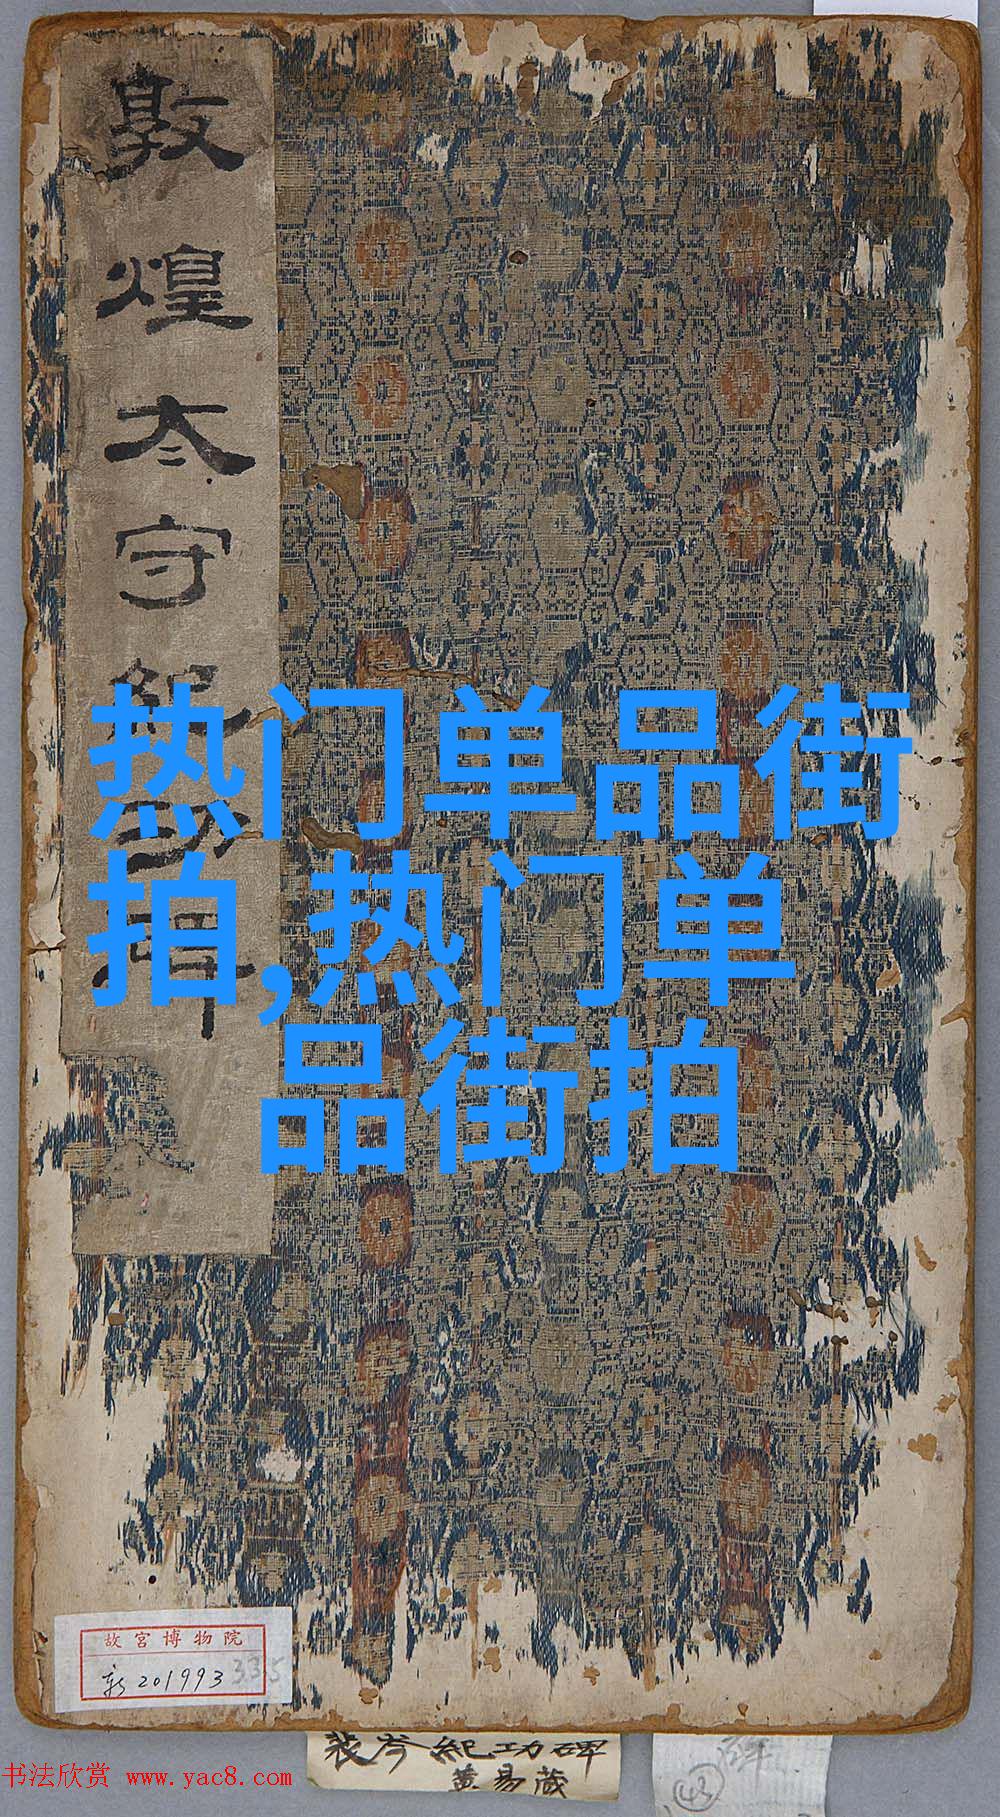 敦煌太守紀功碑
热门单品街
拍,热门单
品街拍
故宫博物院
新201993
335
裴岑紀功碑
黄易藏
43
书法欣赏 www.yac8.com